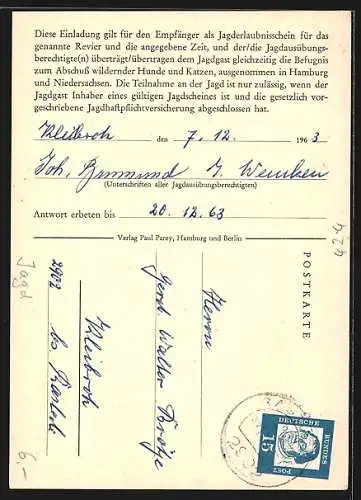 Diese Einladung gilt für den Empfänger als Jagderlaubnisschein für das
genannte Revier und die angegebene Zeit, und der/die Jagdausübungs-
berechtigte(n) überträgt/übertragen dem Jagdgast gleichzeitig die Befugnis
zum Abschuß wildernder Hunde und Katzen, ausgenommen in Hamburg
und Niedersachsen. Die Teilnahme an der Jagd ist nur zulässig, wenn der
Jagdgast Inhaber eines gültigen Jagdscheines ist und die gesetzlich vor-
geschriebene Jagdhaftpflichtversicherung abgeschlossen hat.
Kleibrok den 7. 12. 1963
Joh.
(Unterschriften aller Jagdausübungsberechtigten)
Antwort erbeten bis 20. 12. 63
Verlag Paul Parey, Hamburg und Berlin
POSTKARTE
Herrn
Gerd Walter
Kleibrok
2902
Jagd
6.-
424
DEUTSCHE
BUNDES
POST
15